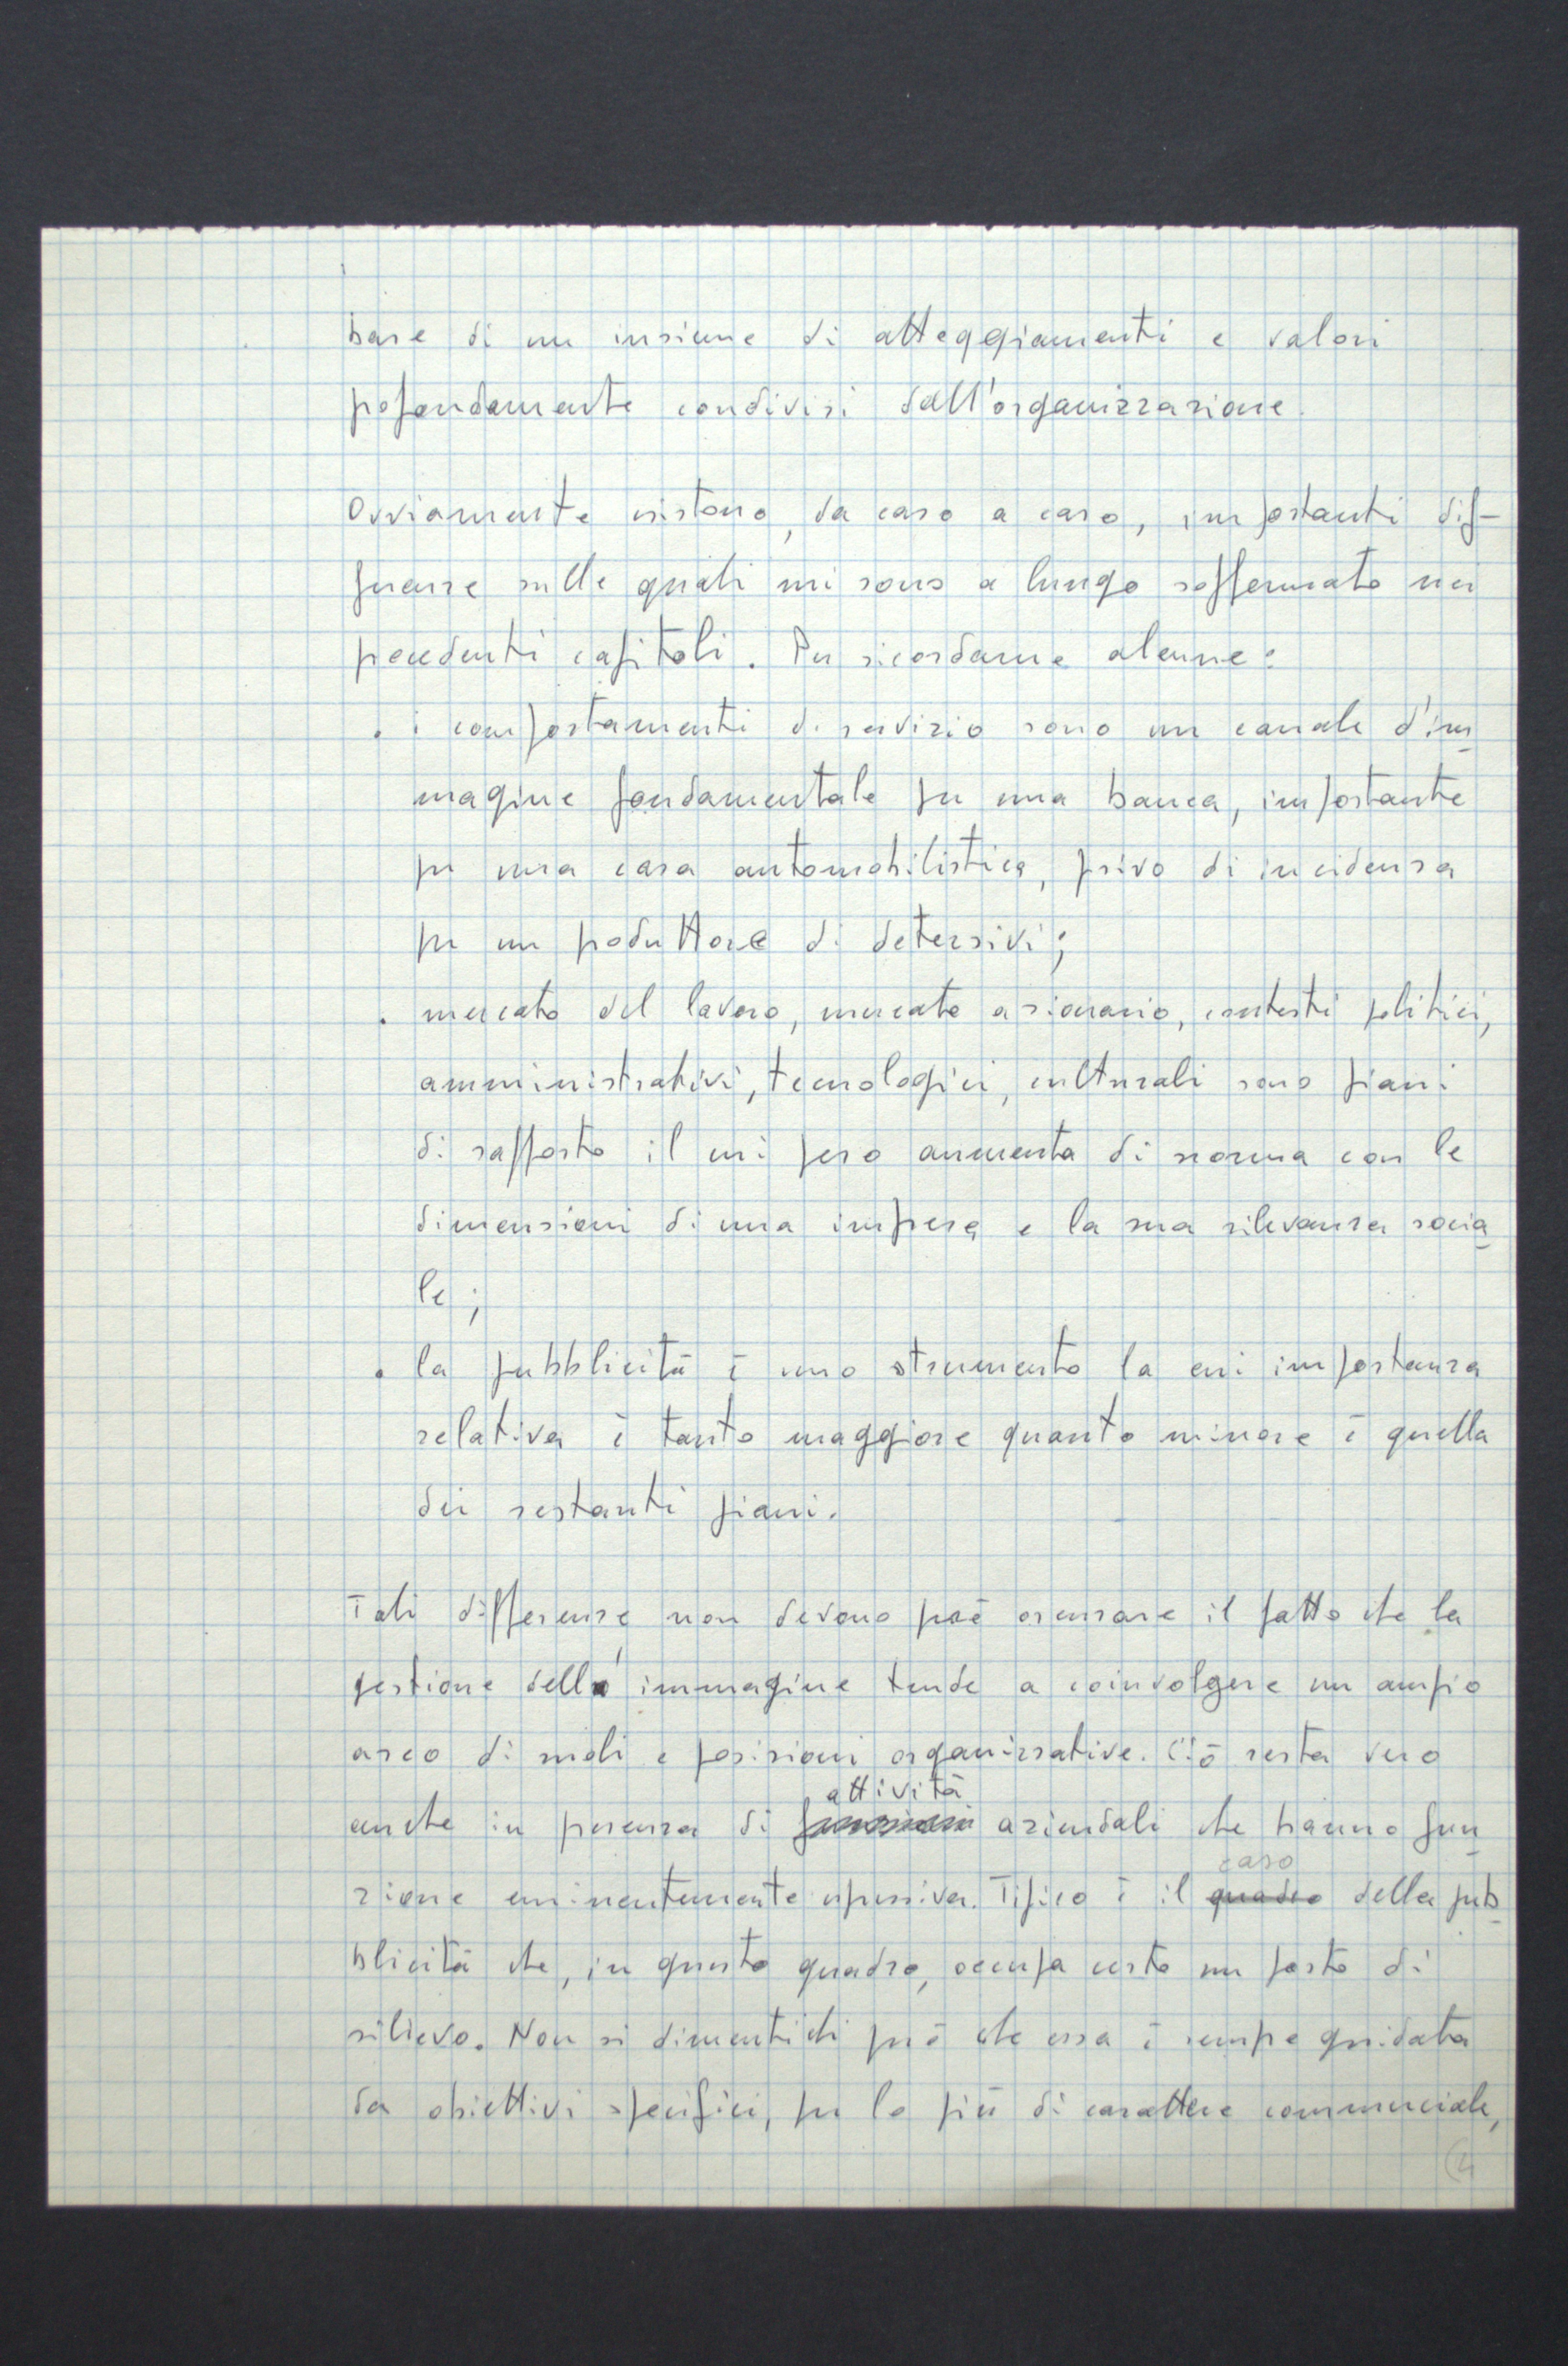 base di un insieme di atteggiamenti e valori
profondamente condivisi dall'organizzazione.
Ovviamente esistono, da caso a caso, importanti dif-
ferenze sulle quali mi sono a lungo soffermato nei
precedenti capitoli. Per ricordarne alcune:
. i comportamenti di servizio sono un canale d'im_
magine fondamentale per una banca, importante
per una casa automobilistica, privo di incidenza
per un produttore di detersivi;
. mercato del lavoro, mercato azionario, contesti politici,
amministrativi, tecnologici, culturali sono piani
di rapporto il cui peso aumenta di norma con le
dimensioni di una impresa e la sua rilevanza socia_
le;
. la pubblicità è uno strumento la cui importanza
relativa è tanto maggiore quanto minore è quella
dei restanti piani.
Tali differenze non devono però oscurare il fatto che la
gestione dell'immagine tende a coinvolgere un ampio
arco di ruoli e posizioni organizzative. Ciò resta vero
attività
anche in presenza di funzioni aziendali che hanno fun_
caso
zione eminentemente espressiva. Tipico è il quadro della pub_
blicità che, in questo quadro, occupa certo un posto di
rilievo. Non si dimentichi però che essa è sempre guidata
da obiettivi specifici, per lo più di carattere commerciale,
4